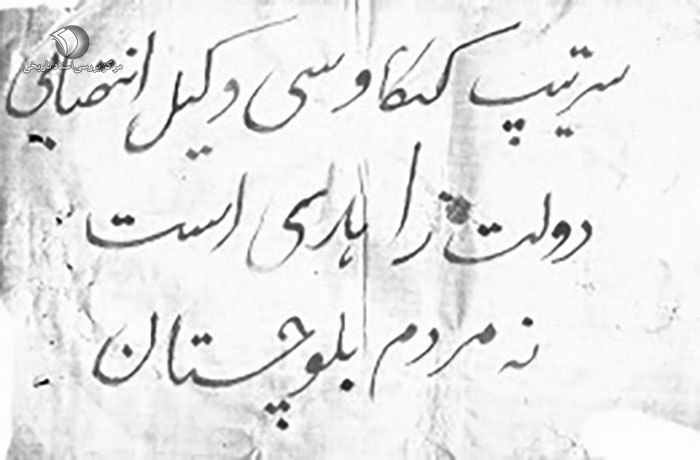 مرکز بررسی اسناد تاریخی
سرتیپ کیکاوسی وکیل انتصابی
دولت زاهدی است
نه مردم بلوچستان